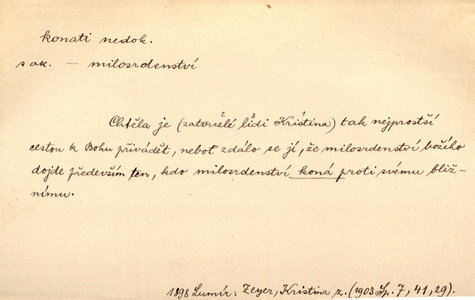 konati nedok.
s ak. – milosrdenství
Chtěla je (zatvrzělé lidi Kristina) tak nejprostší
cestou k Bohu přivádět, neboť zdálo se jí, že milosrdenství božího
dojde především ten, kdo milosrdenství koná proti svému bliž-
nímu.
1898 Lumír: Zeyer, Kristina z. (1903 Sp. 7, 41, 29).